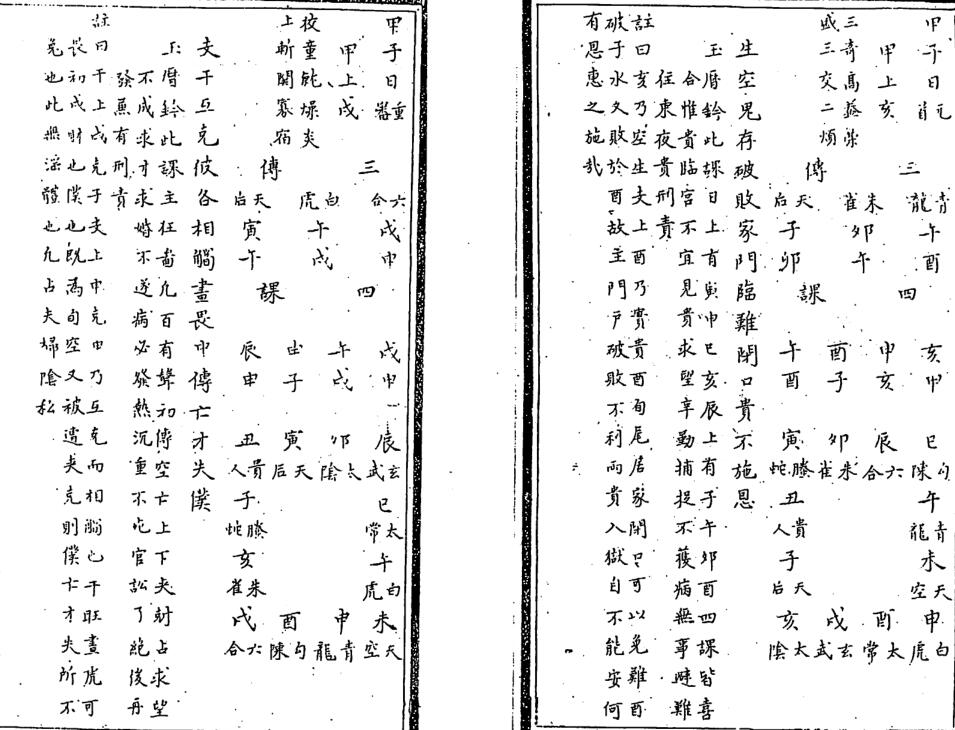 甲子日元首
甲上亥
三奇高蓋榮
盛三交二煩
三傳
青龍 朱雀 天后
午 卯 子
酉 午 卯
四課
亥 申 酉 午
甲 亥 子 酉
巳 辰 卯 寅
勾陳 六合 朱雀 螣蛇
午 丑
青龍 貴人
未 子
天空 天后
申 酉 戌 亥
白虎 太常 玄武 太陰
生空鬼存破敗家門臨難閉口貴不施恩
玉曆鈐此課日上有寅申巳亥辰上有子午卯酉四課皆喜
合惟貴臨宮不宜見貴求望辛勤捕捉不獲病無事難
往東夜貴刑責
註曰亥乃空生支上酉乃實貴酉旬尾居家閉口可以免難酉
破子水久敗於酉故主門戶破敗不利而貴入獄自不能安何
有恩惠之施哉
甲子日重審
甲上戌
狡童純燥炎
上斬關寡宿
三傳
六合 白虎 天后
戌 午 寅
申 戌 午
四課
戌 午 申 辰
甲 戌 子 申
辰 卯 寅 丑
玄武 太陰 天后 貴人
巳 子
太常 螣蛇
午 亥
白虎 朱雀
未 申 酉 戌
天空 青龍 勾陳 六合
支干互克彼各相傷畫畏申傳亡才失僕
玉曆鈐此課主狂凡百有聲初傳空亡上下夾財占求望
不成求才求婚不遂病必發熱沉重不官訟了絶後再
發無有刑責
註曰干上戌克子支上申克甲乃互克而相傷也干旺晝虎可
畏初戌財也僕也既為旬空又被遭夾克則僕亡才失所不
免也此無深體也凡占夫婦陰私